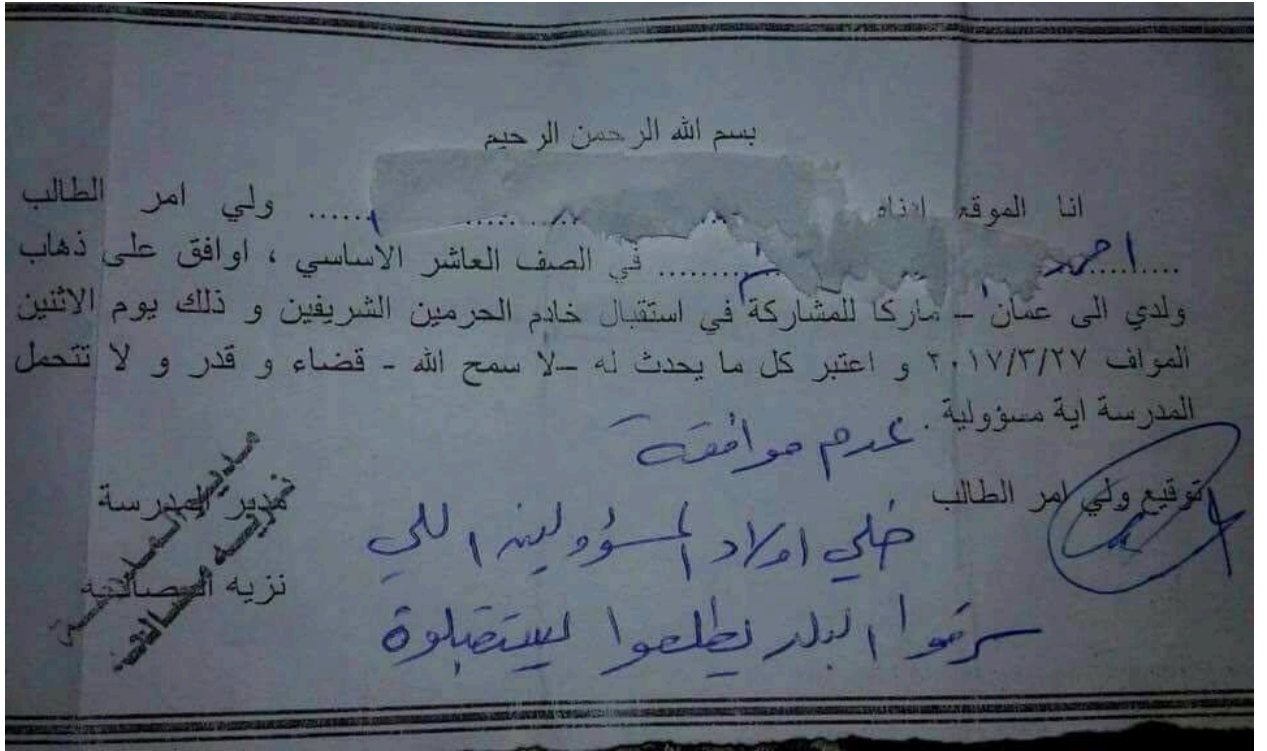 بسم الله الرحمن الرحيم
انا الموقع ادناه ..... ولي امر الطالب
..... احمد ..... في الصف العاشر الاساسي ، اوافق على ذهاب
ولدي الى عمان – ماركا للمشاركة في استقبال خادم الحرمين الشريفين و ذلك يوم الاثنين
المواف ٢٠١٧/٣/٢٧ و اعتبر كل ما يحدث له –لا سمح الله - قضاء و قدر و لا تتحمل
المدرسة اية مسؤولية .
عدم موافقة
توقيع ولي امر الطالب
خلي اولاد المسؤولين اللي
سرقوا البلد يطلعوا ليستقبلوة
مدير المدرسة
نزيه المصالحه